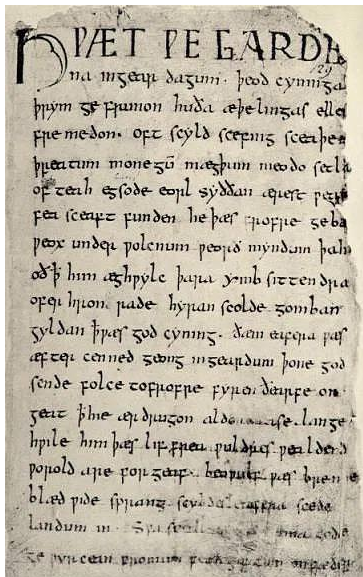 HǷÆT ǷE GARDE
na in gear dagum · þeod cyninga
þrym ge frunon huða æþelingas elle
fre medon. oft scyld scefing sceaþe
þreatum monegū mægþum meodo setla
of teah egsode eorl syððan ærest ƿear
fea sceaft funden he þæs frofre geba
ƿeox under ƿolcnum ƿeorð myndum þah
oð ꝥ him æghƿylc þara ymb sittendra
ofer hron rade hyran scolde gomban
gyldan ꝥ ƿæs god cyning. ðæm eafera ƿæs
æfter cenned geong in geardum þone god
sende folce to frofre fyren ðearfe on
geat ꝥ hie ær drugon aldor ase. lange
hƿile him þæs lif frea ƿuldres ƿealdend
ƿorold are for geaf. beoƿulf ƿæs breme
blæd ƿide sprang scyldes eafera scede
landum in. Sƿa sceal guma gode
ge ƿyrcean fromum feoh giftum on fæder